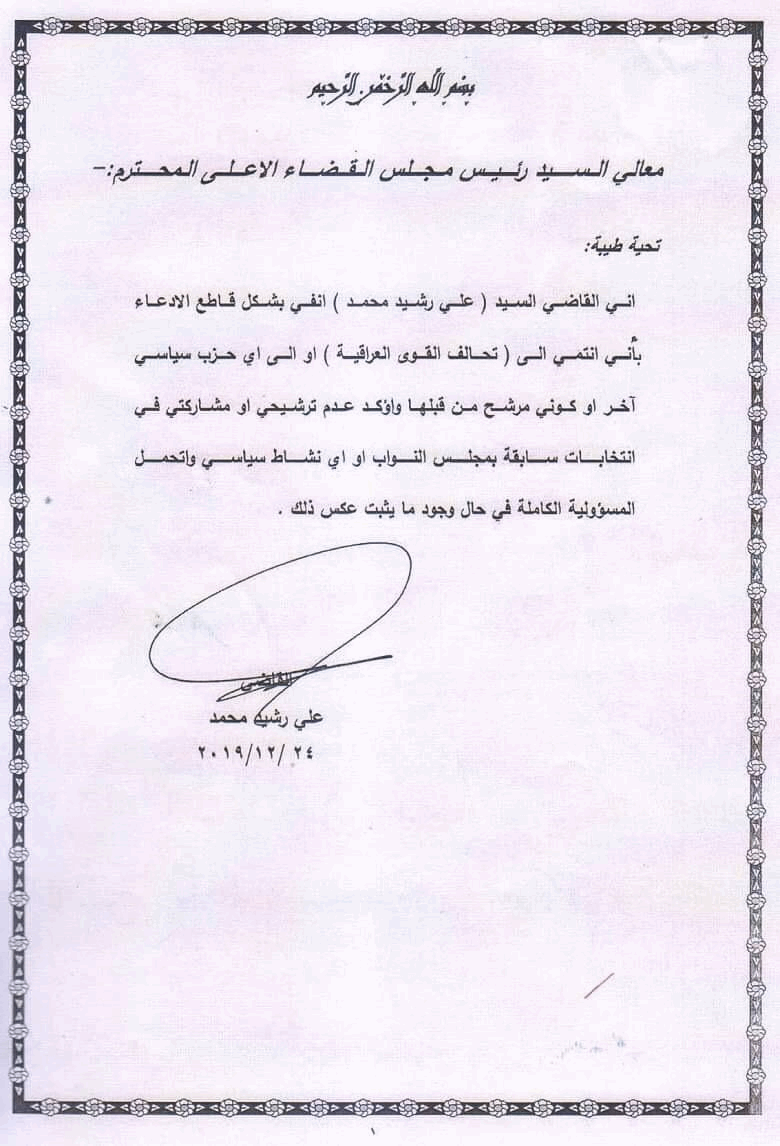 بسم الله الرحمن الرحيم
معالي السيد رئيس مجلس القضاء الاعلى المحترم:-
تحية طيبة:
اني القاضي السيد ( علي رشيد محمد ) انفي بشكل قاطع الادعاء
بأني انتمي الى ( تحالف القوى العراقية ) او الى اي حزب سياسي
آخر او كوني مرشح من قبلها واؤكد عدم ترشيحي او مشاركتي في
انتخابات سابقة بمجلس النواب او اي نشاط سياسي واتحمل
المسؤولية الكاملة في حال وجود ما يثبت عكس ذلك .
القاضي
علي رشيد محمد
٢٤ /٢٠١٩/١٢
١